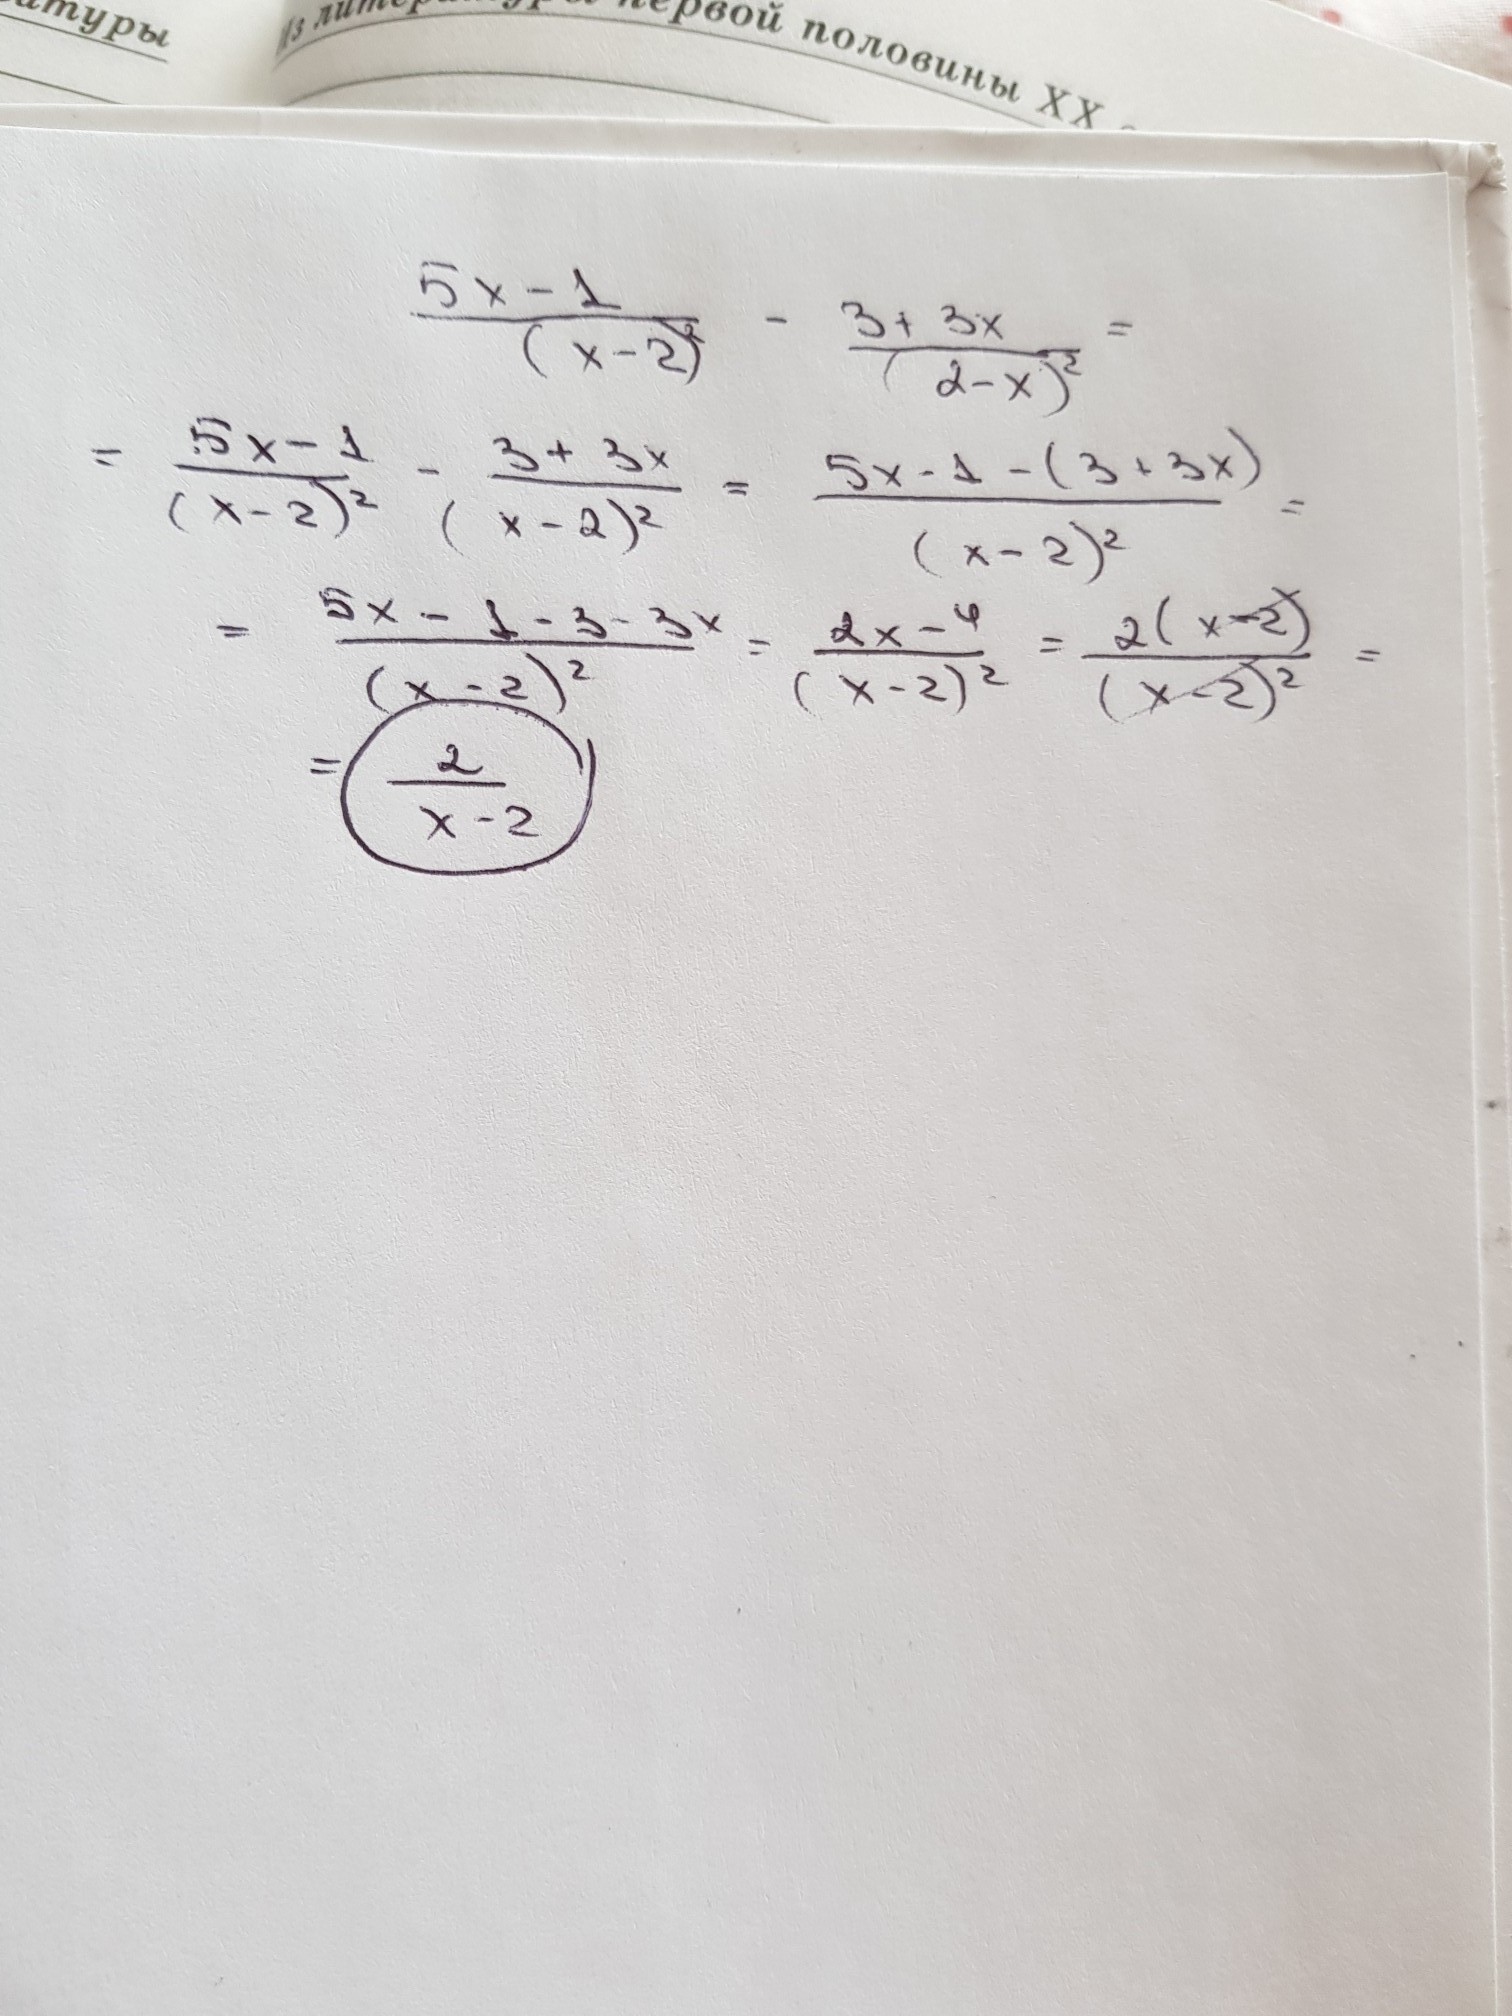 атуры Из литературы первой половины XX
\frac{5x-1}{(x-2)^2} - \frac{3+3x}{(2-x)^2} =
= \frac{5x-1}{(x-2)^2} - \frac{3+3x}{(x-2)^2} = \frac{5x-1-(3+3x)}{(x-2)^2} =
= \frac{5x-1-3-3x}{(x-2)^2} = \frac{2x-4}{(x-2)^2} = \frac{2(x-2)}{(x-2)^2} =
= \frac{2}{x-2}